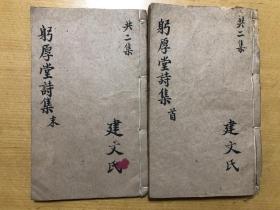 共二集
躬厚堂詩集 首
建文氏
共二集
躬厚堂詩集 末
建文氏